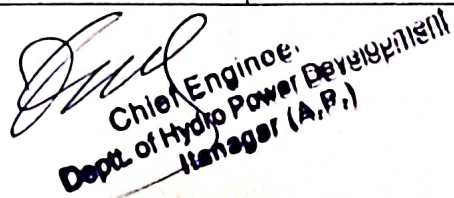 Chief Engineer
Deptt. of Hydro Power Development
Itanagar (A.P.)